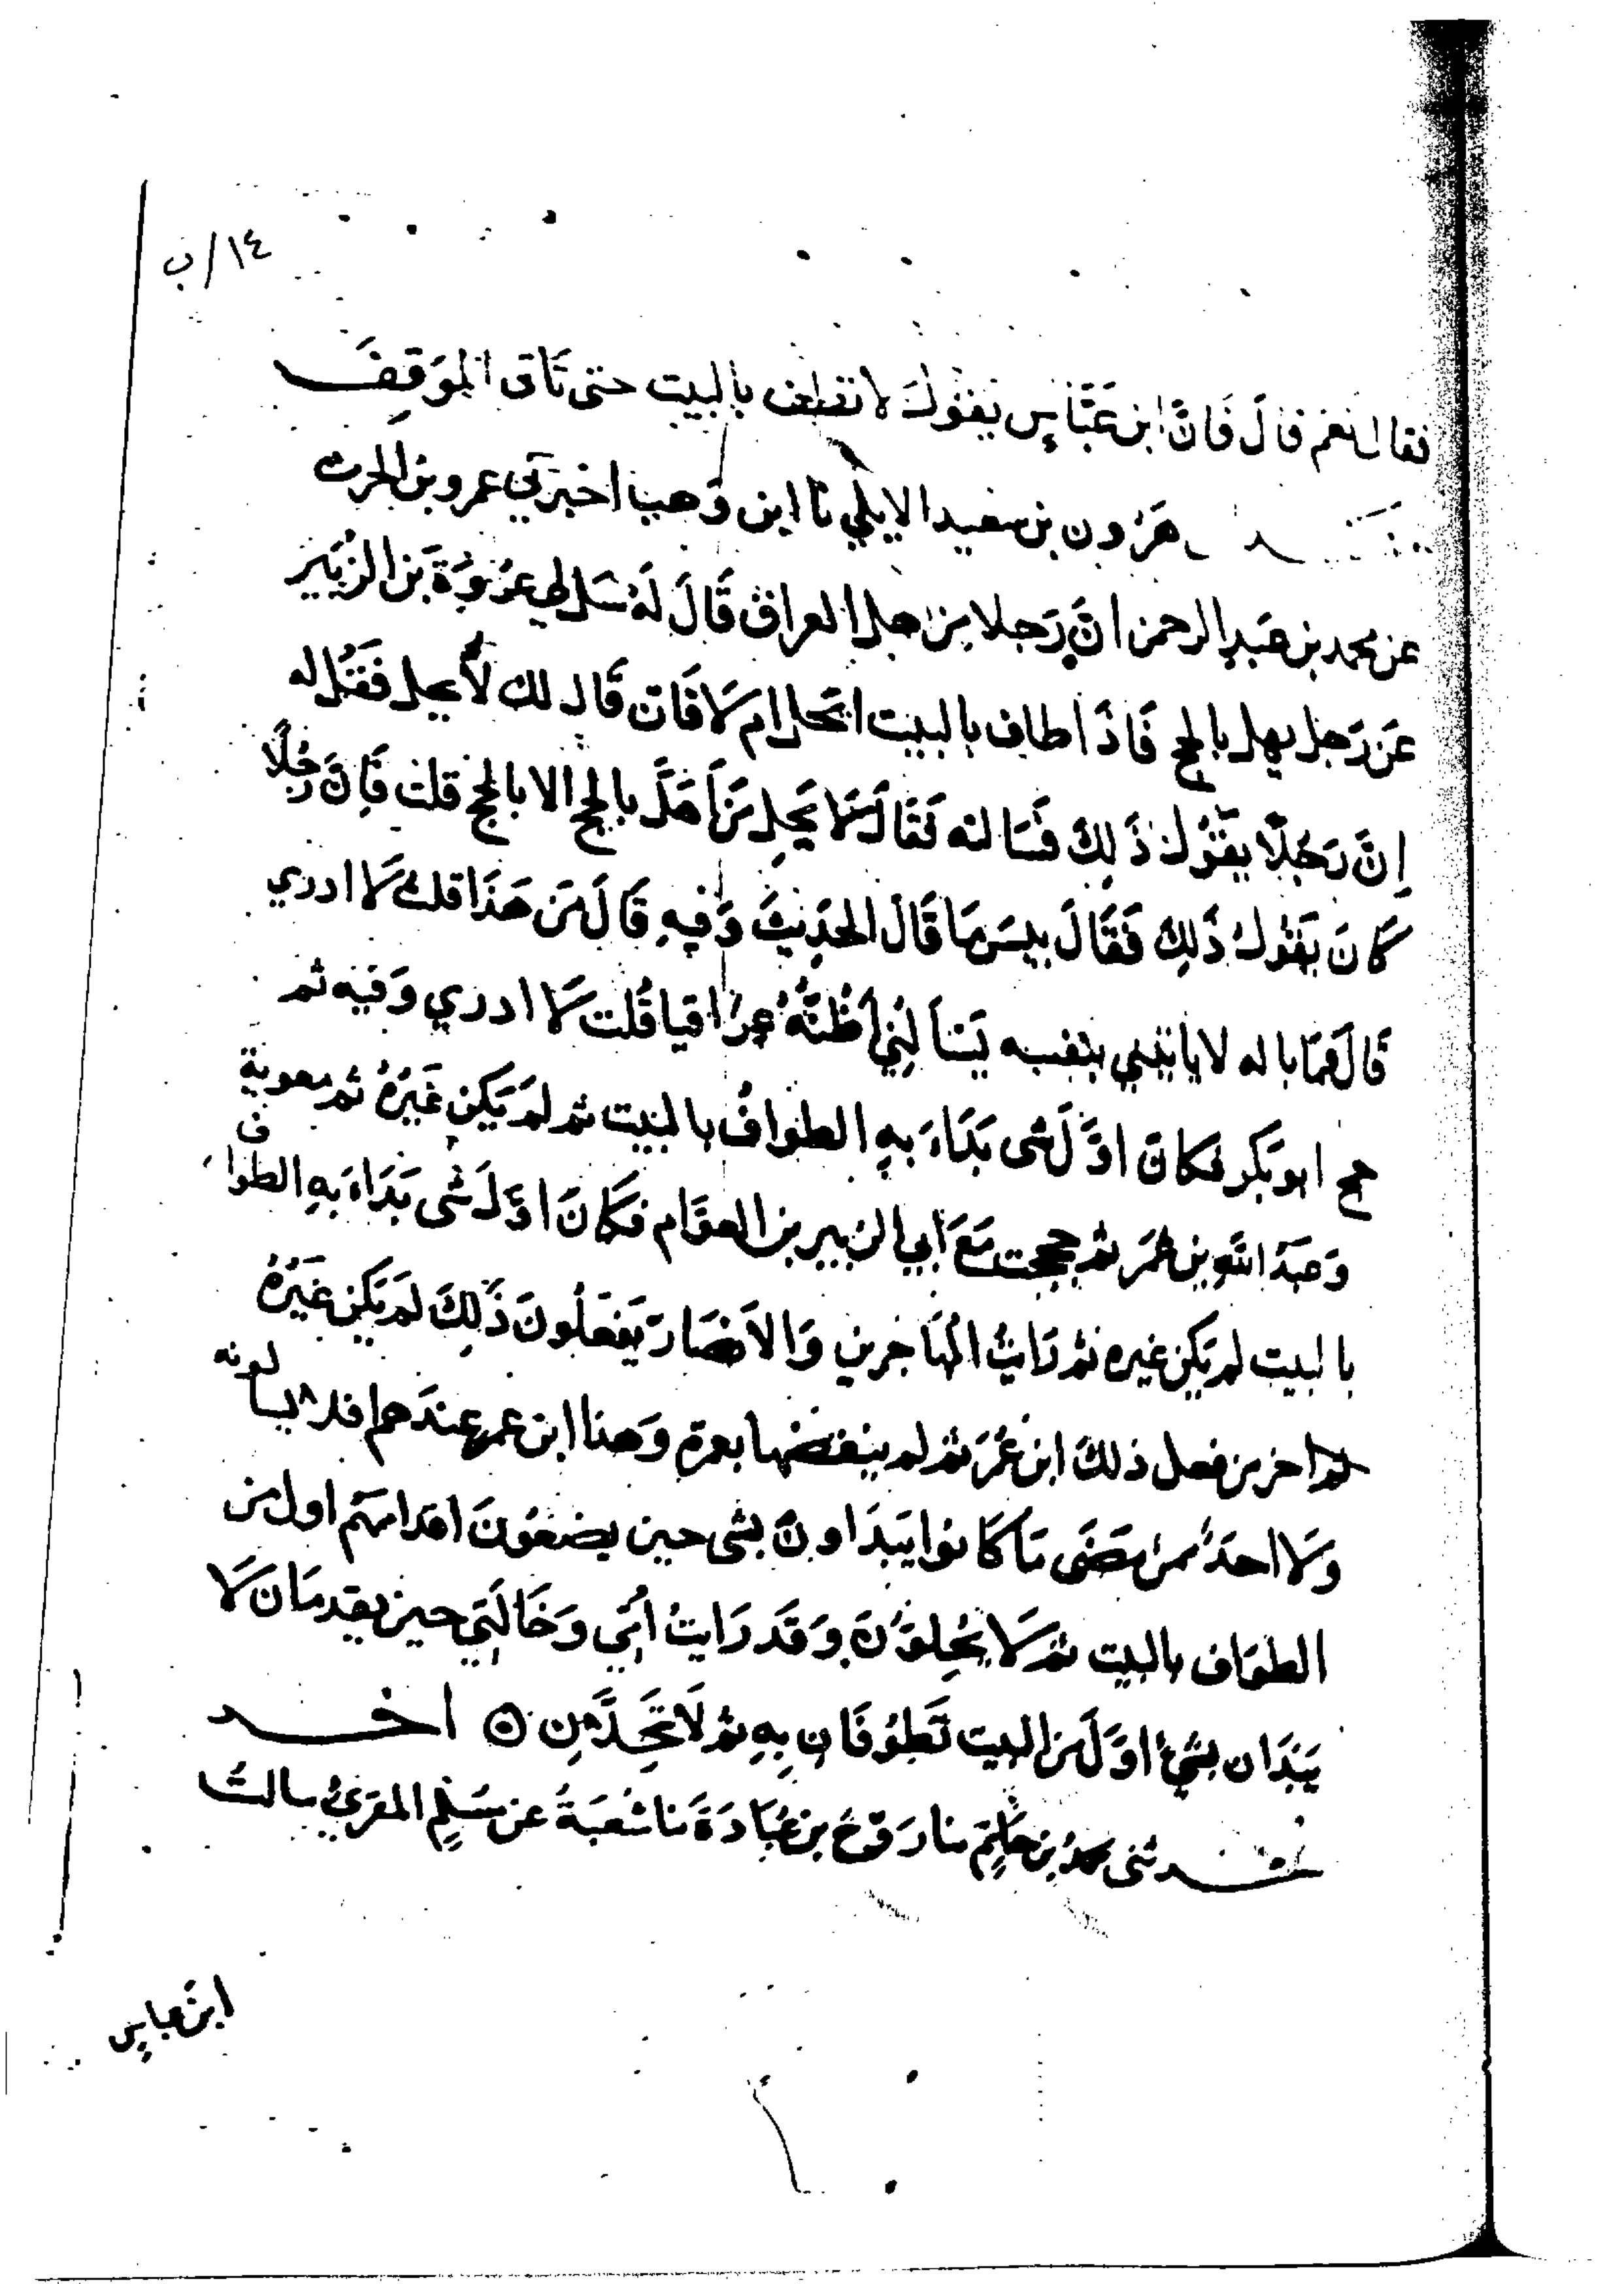 ١٤/ب
فقال نعم قال فَانَّ ابن عَبَّاسٍ يَقولُ لا تطف بالبيت حتى تَاتى المَوقِفَ
هرُون بن سعيد الايلي نا ابن وَهب اخبرني عمرو بن الحرث
عن محمد بن عَبدِ الرحمن انَّ رَجلا من اهل العراق قَالَ لَهُ سَل لي عُروَةَ بن الزُبَير
عَن رَجل يهل بالحج فَاذَا طاف بالبيت ايحل ام لا فَان قَال لك لا يحل فَقُل له
اِنَّ رَجُلًا يقُولُ ذَلِكَ فَسَالته فَقَالَ لا يَحِل مَن اَهَلَّ بالحج الا بالحج قلت فَاِنَّ رَجُلًا
كَانَ يَقُولُ ذَلِكَ فَقَالَ بيسَ مَا قَالَ الحَدِيثَ وَفيهِ قَالَ مَن هَذَا قلت لَا ادري
قَالَ فمَا باله لا ياتيني بنفسه يَسَألُنِي أَظُنُّهُ عِرَاقيا قُلت لَا ادري وَفيه ثم
حج ابو بَكر فكانَ اوَّلَ شى بَدَاءَ بِهِ الطوَافُ بالبَيت ثم لَم يَكن غَيرُهُ ثم معوية
وَعَبدُ اللَّهِ بن عُمَرَ ثم حججت مَعَ اَبي الزبير بن العوَّام فكَانَ اوَّلَ شى بَدَاءَ بِهِ الطواف
بالبيت لم يَكن غيره ثم رَايتُ المُهَاجرين وَالاَنصَارَ يَفعَلُونَ ذَلِكَ لَم يَكن غَيرُهُ
ثم اخر من فعل ذلكَ ابن عُمَرَ ثم لم ينقضها بعمرة وَهذا ابن عمر عندَهم افلا يسالونه
وَلا احدٌ ممن مَضَى مَا كَانوا يَبدَاونَ بشى حين يضَعُونَ اقدامهم اول من
الطوَاف بالبيت ثم لَا يَحِلوُّنَ وَقَد رَايتُ أُمِّي وَخَالَتِي حين يقدمَان لَا
يَبدَان بشيء اوَّلَ من البيت تَطُوفَان بِهِ ثم لَا تَحِلَّانِ ۞ اخــد
حــدثنى محمدُ بن حَاتِمٍ نا رَوحُ بن عُبَادَةَ نا شُعبَةُ عن مُسلِمٍ القرىُّ سالتُ
ابن عباسٍ